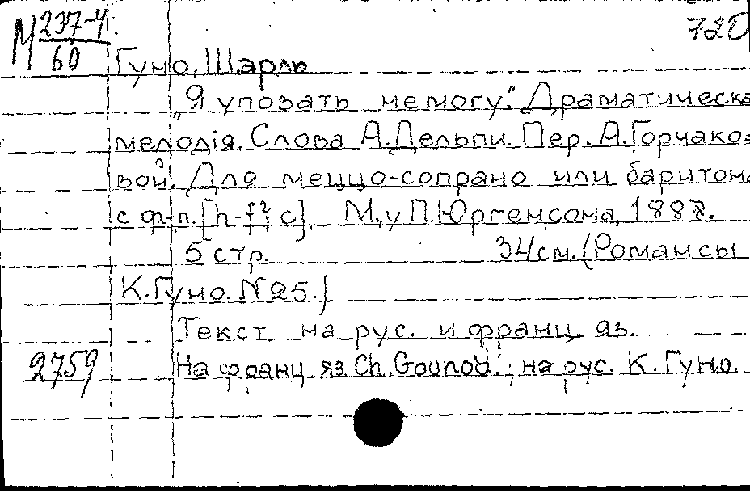 М 237-4
60
720
Гуно, Шарль
„Я уповать не могу". Драматическа
мелодія. Слова А. Дельпи. Пер. А. Горчако=
вой. Для меццо-сопрано или баритона
с ф-п. [h-f², c]. М, у П Юргенсона, 1888.
5 стр. 34 см. (Романсы
К. Гуно. N 25.)
Текст на рус. и франц яз.
2759 На франц яз Ch. Gounod; на рус. К. Гуно.